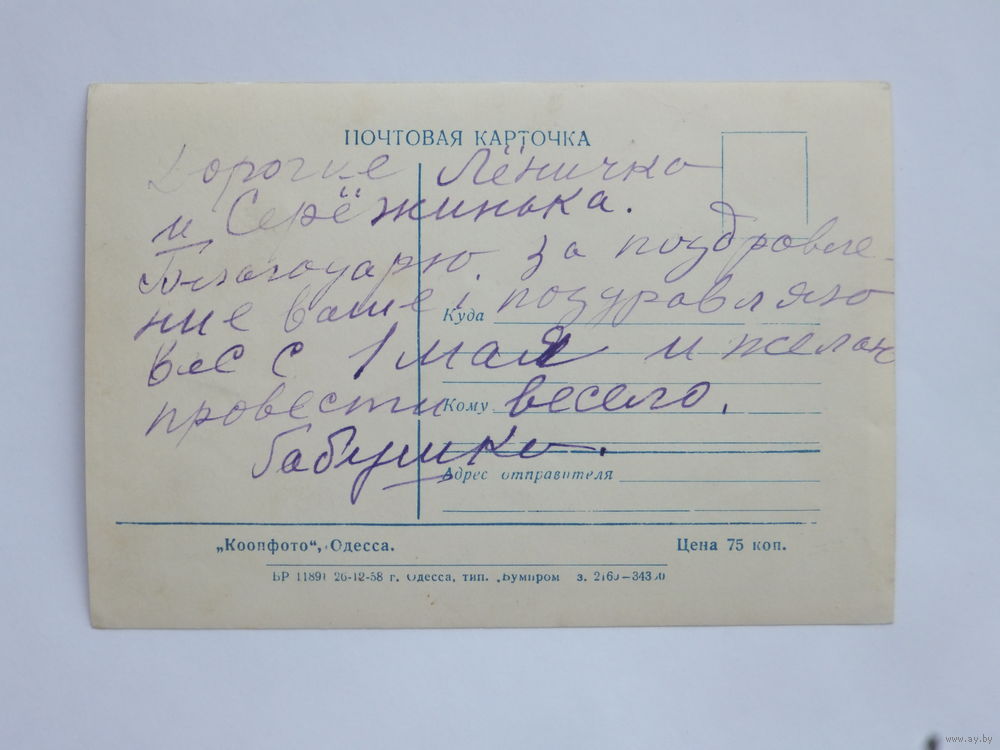 ПОЧТОВАЯ КАРТОЧКА
Дорогие Лёничка
и Серёжинька.
Благодарю. за поздровле-
ние ваше, поздравляю
Вас с 1 мая и желаю
провести весело.
Бабушка.
Куда
Кому
Адрес отправителя
„Коопфото“, Одесса.
Цена 75 коп.
БР 11891 26-12-58 г. Одесса, тип. „Бумпром з.
www.ay.by